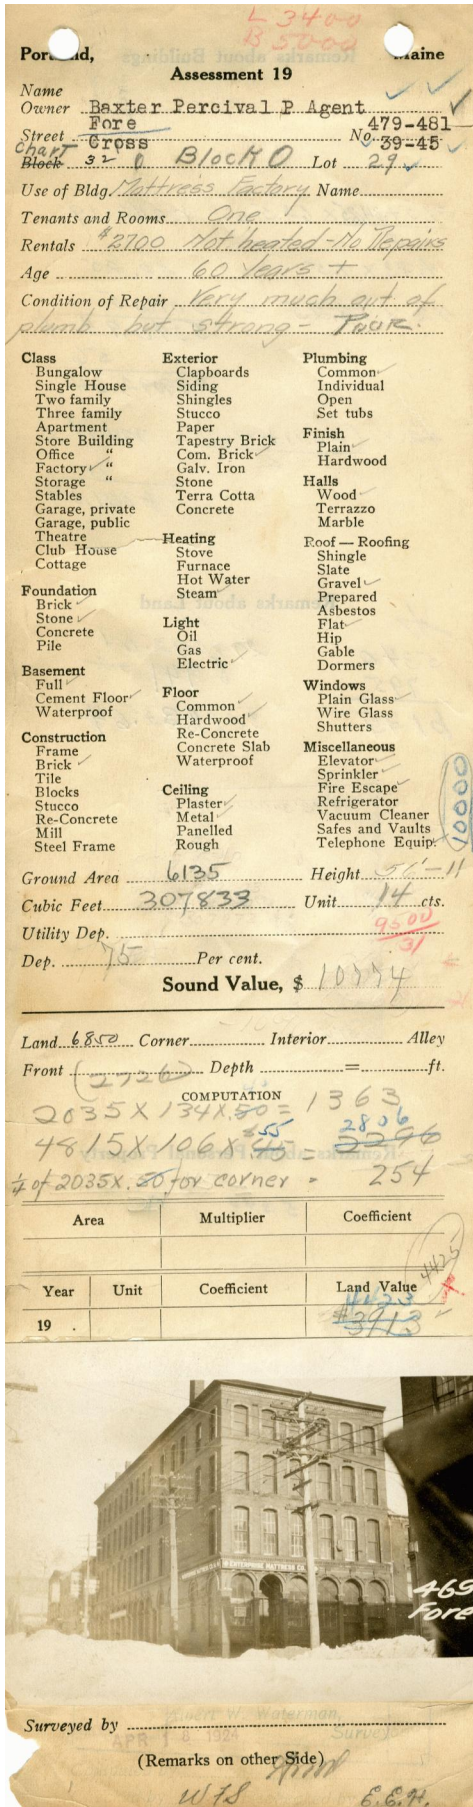 L 3400
B 5000
Portland, Maine
Assessment 19
Name
Owner Baxter Percival P Agent
Fore 479-481
Street Cross No 39-45
Chart
Block 32 O Block O Lot 29
Use of Bldg. Mattress Factory Name
Tenants and Rooms One
Rentals $2700 Not heated - No Repairs
Age 60 Years +
Condition of Repair Very much out of
plumb but strong - Poor.
Class
Bungalow
Single House
Two family
Three family
Apartment
Store Building
Office "
Factory "
Storage "
Stables
Garage, private
Garage, public
Theatre
Club House
Cottage
Foundation
Brick
Stone
Concrete
Pile
Basement
Full
Cement Floor
Waterproof
Construction
Frame
Brick
Tile
Blocks
Stucco
Re-Concrete
Mill
Steel Frame
Exterior
Clapboards
Siding
Shingles
Stucco
Paper
Tapestry Brick
Com. Brick
Galv. Iron
Stone
Terra Cotta
Concrete
Heating
Stove
Furnace
Hot Water
Steam
Light
Oil
Gas
Electric
Floor
Common
Hardwood
Re-Concrete
Concrete Slab
Waterproof
Ceiling
Plaster
Metal
Panelled
Rough
Plumbing
Common
Individual
Open
Set tubs
Finish
Plain
Hardwood
Halls
Wood
Terrazzo
Marble
Roof — Roofing
Shingle
Slate
Gravel
Prepared
Asbestos
Flat
Hip
Gable
Dormers
Windows
Plain Glass
Wire Glass
Shutters
Miscellaneous
Elevator
Sprinkler
Fire Escape
Refrigerator
Vacuum Cleaner
Safes and Vaults
Telephone Equip.
10000
Ground Area 6135 Height
Cubic Feet 307833 Unit 14 cts.
Utility Dep. 9500
31
Dep. 75 Per cent.
Sound Value, $ 10774
Land 6850 Corner Interior Alley
Front (2726) Depth = ft.
COMPUTATION
2035 X 134 X .50 = 1363
55 2806
4815 X 106 X .45 = 2296
1/4 of 2035 X .50 for corner = 254
Area Multiplier Coefficient
4425
Year Unit Coefficient Land Value
4423
19 . $3913
ENTERPRISE MATTRESS CO.
469
Fore
Albert W. Waterman,
Surveyed by
APR 18 1924 Surveyor
(Remarks on other Side)
WFS E.E.H.